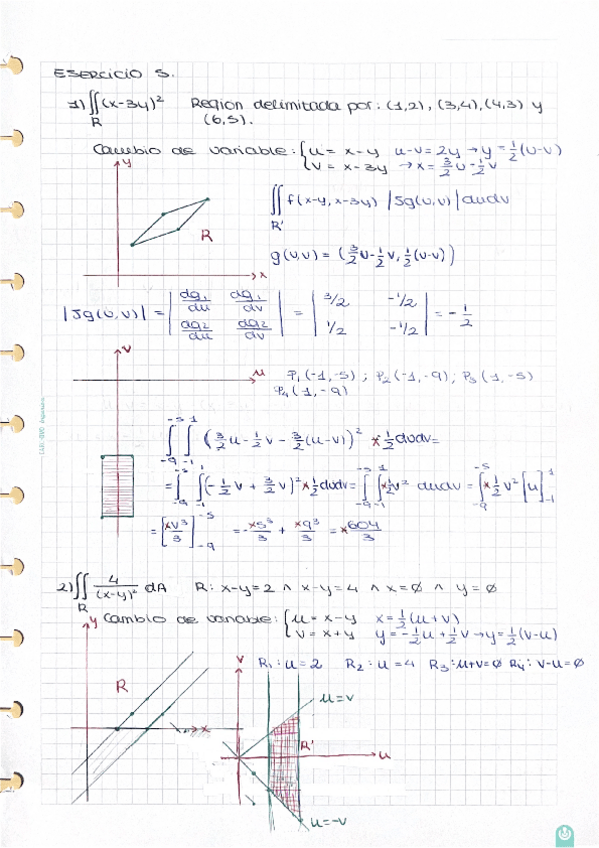 EJERCICIO 5.
1) ∬ (x-3y)² Region delimitada por: (1,2), (3,4), (4,3) y
R (6,5).
Cambio de variable: { u = x-y u-v = 2y → y = 1/2 (u-v)
v = x-3y → x = 3/2 u - 1/2 v
y
∬ f(x-y, x-3y) |Jg(u,v)| dudv
R'
R
g(u,v) = (3/2 u - 1/2 v, 1/2 (u-v))
x
|Jg(u,v)| = | dg₁/du dg₁/dv | = | 3/2 -1/2 | = - 1/2
| dg₂/du dg₂/dv | | 1/2 -1/2 |
v
u P₁(-1,-5) ; P₂(-1,-9) ; P₃(1,-5)
P₄(1,-9)
∫₋₉⁻⁵ ∫₋₁¹ (3/2 u - 1/2 v - 3/2 (u-v))² × 1/2 dudv =
= ∫₋₉⁻⁵ ∫₋₁¹ (-1/2 v + 3/2 v)² × 1/2 dudv = ∫₋₉⁻⁵ ∫₋₁¹ × 1/2 v² dudv = ∫₋₉⁻⁵ × 1/2 v² [u]₋₁¹
= [×v³/3]₋₉⁻⁵ = -×5³/3 + ×9³/3 = ×604/3
2) ∬ 4/(x-y)² dA R: x-y=2 ∧ x-y=4 ∧ x=∅ ∧ y=∅
R
y Cambio de variable: { u = x-y x = 1/2 (u+v)
v = x+y y = -1/2 u + 1/2 v → y = 1/2 (v-u)
v R₁: u=2 R₂: u=4 R₃: u+v=∅ R₄: v-u=∅
R
u=v
x
R'
u
u=-v